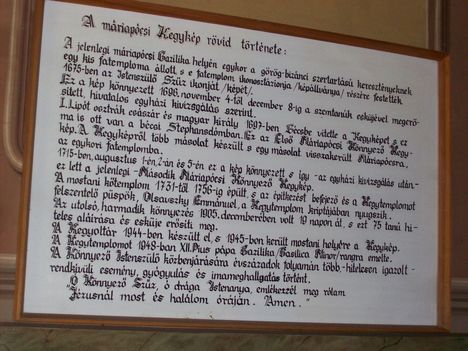 A máriapócsi Kegykép rövid története:
A jelenlegi máriapócsi Bazilika helyén egykor a görög-bizánci szertartású keresztényeknek
egy kis fatemploma állott s e fatemplom ikonosztázionja /képállványa/ részére festették
1675-ben az Istenszülő Szűz ikonját /képét/.
Ez a kép könnyezett 1696. november 4-től december 8-ig a szemtanúk esküjével megerő-
sített, hivatalos egyházi kivizsgálás szerint.
I. Lipót osztrák császár és magyar király 1697-ben Bécsbe vitette a Kegyképet s ez
ma is ott van a bécsi Stephansdomban. Ez az Első Máriapócsi Könnyező Kegy-
kép. A Kegyképről több másolat készült s egy másolat visszakerült Máriapócsra,
az egykori fatemplomba.
1715-ben, augusztus 1-én, 2-án és 5-én ez a kép könnyezett s így -az egyházi kivizsgálás után-
ez lett a jelenlegi -Második Máriapócsi Könnyező Kegykép.
A mostani kőtemplom 1731-től 1756-ig épült, s az építkezést befejező és a Kegytemplomot
felszentelő püspök, Olsavszky Emmánuel, a Kegytemplom kriptájában nyugszik.
Az utolsó, harmadik könnyezés 1905. decemberében volt 19 napon át, s ezt 75 tanú hi-
teles aláírása és esküje erősíti meg.
A Kegyoltár 1944-ben készült el, s 1945-ben került mostani helyére a Kegykép.
A Kegytemplomot 1948-ban XII. Pius pápa Bazilika/Basilica Minor/rangra emelte.
A Könnyező Istenszülő közbenjárására évszázadok folyamán több-hitelesen igazolt-
rendkívüli esemény, gyógyulás és imameghallgatás történt.
"Ó Könnyező Szűz, ó drága Istenanya, emlékezzél meg rólam
Jézusnál most és halálom óráján. Amen."